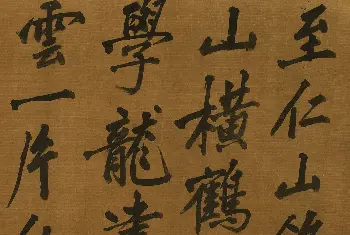 至仁山
山橫鶴
學龍
雲一片